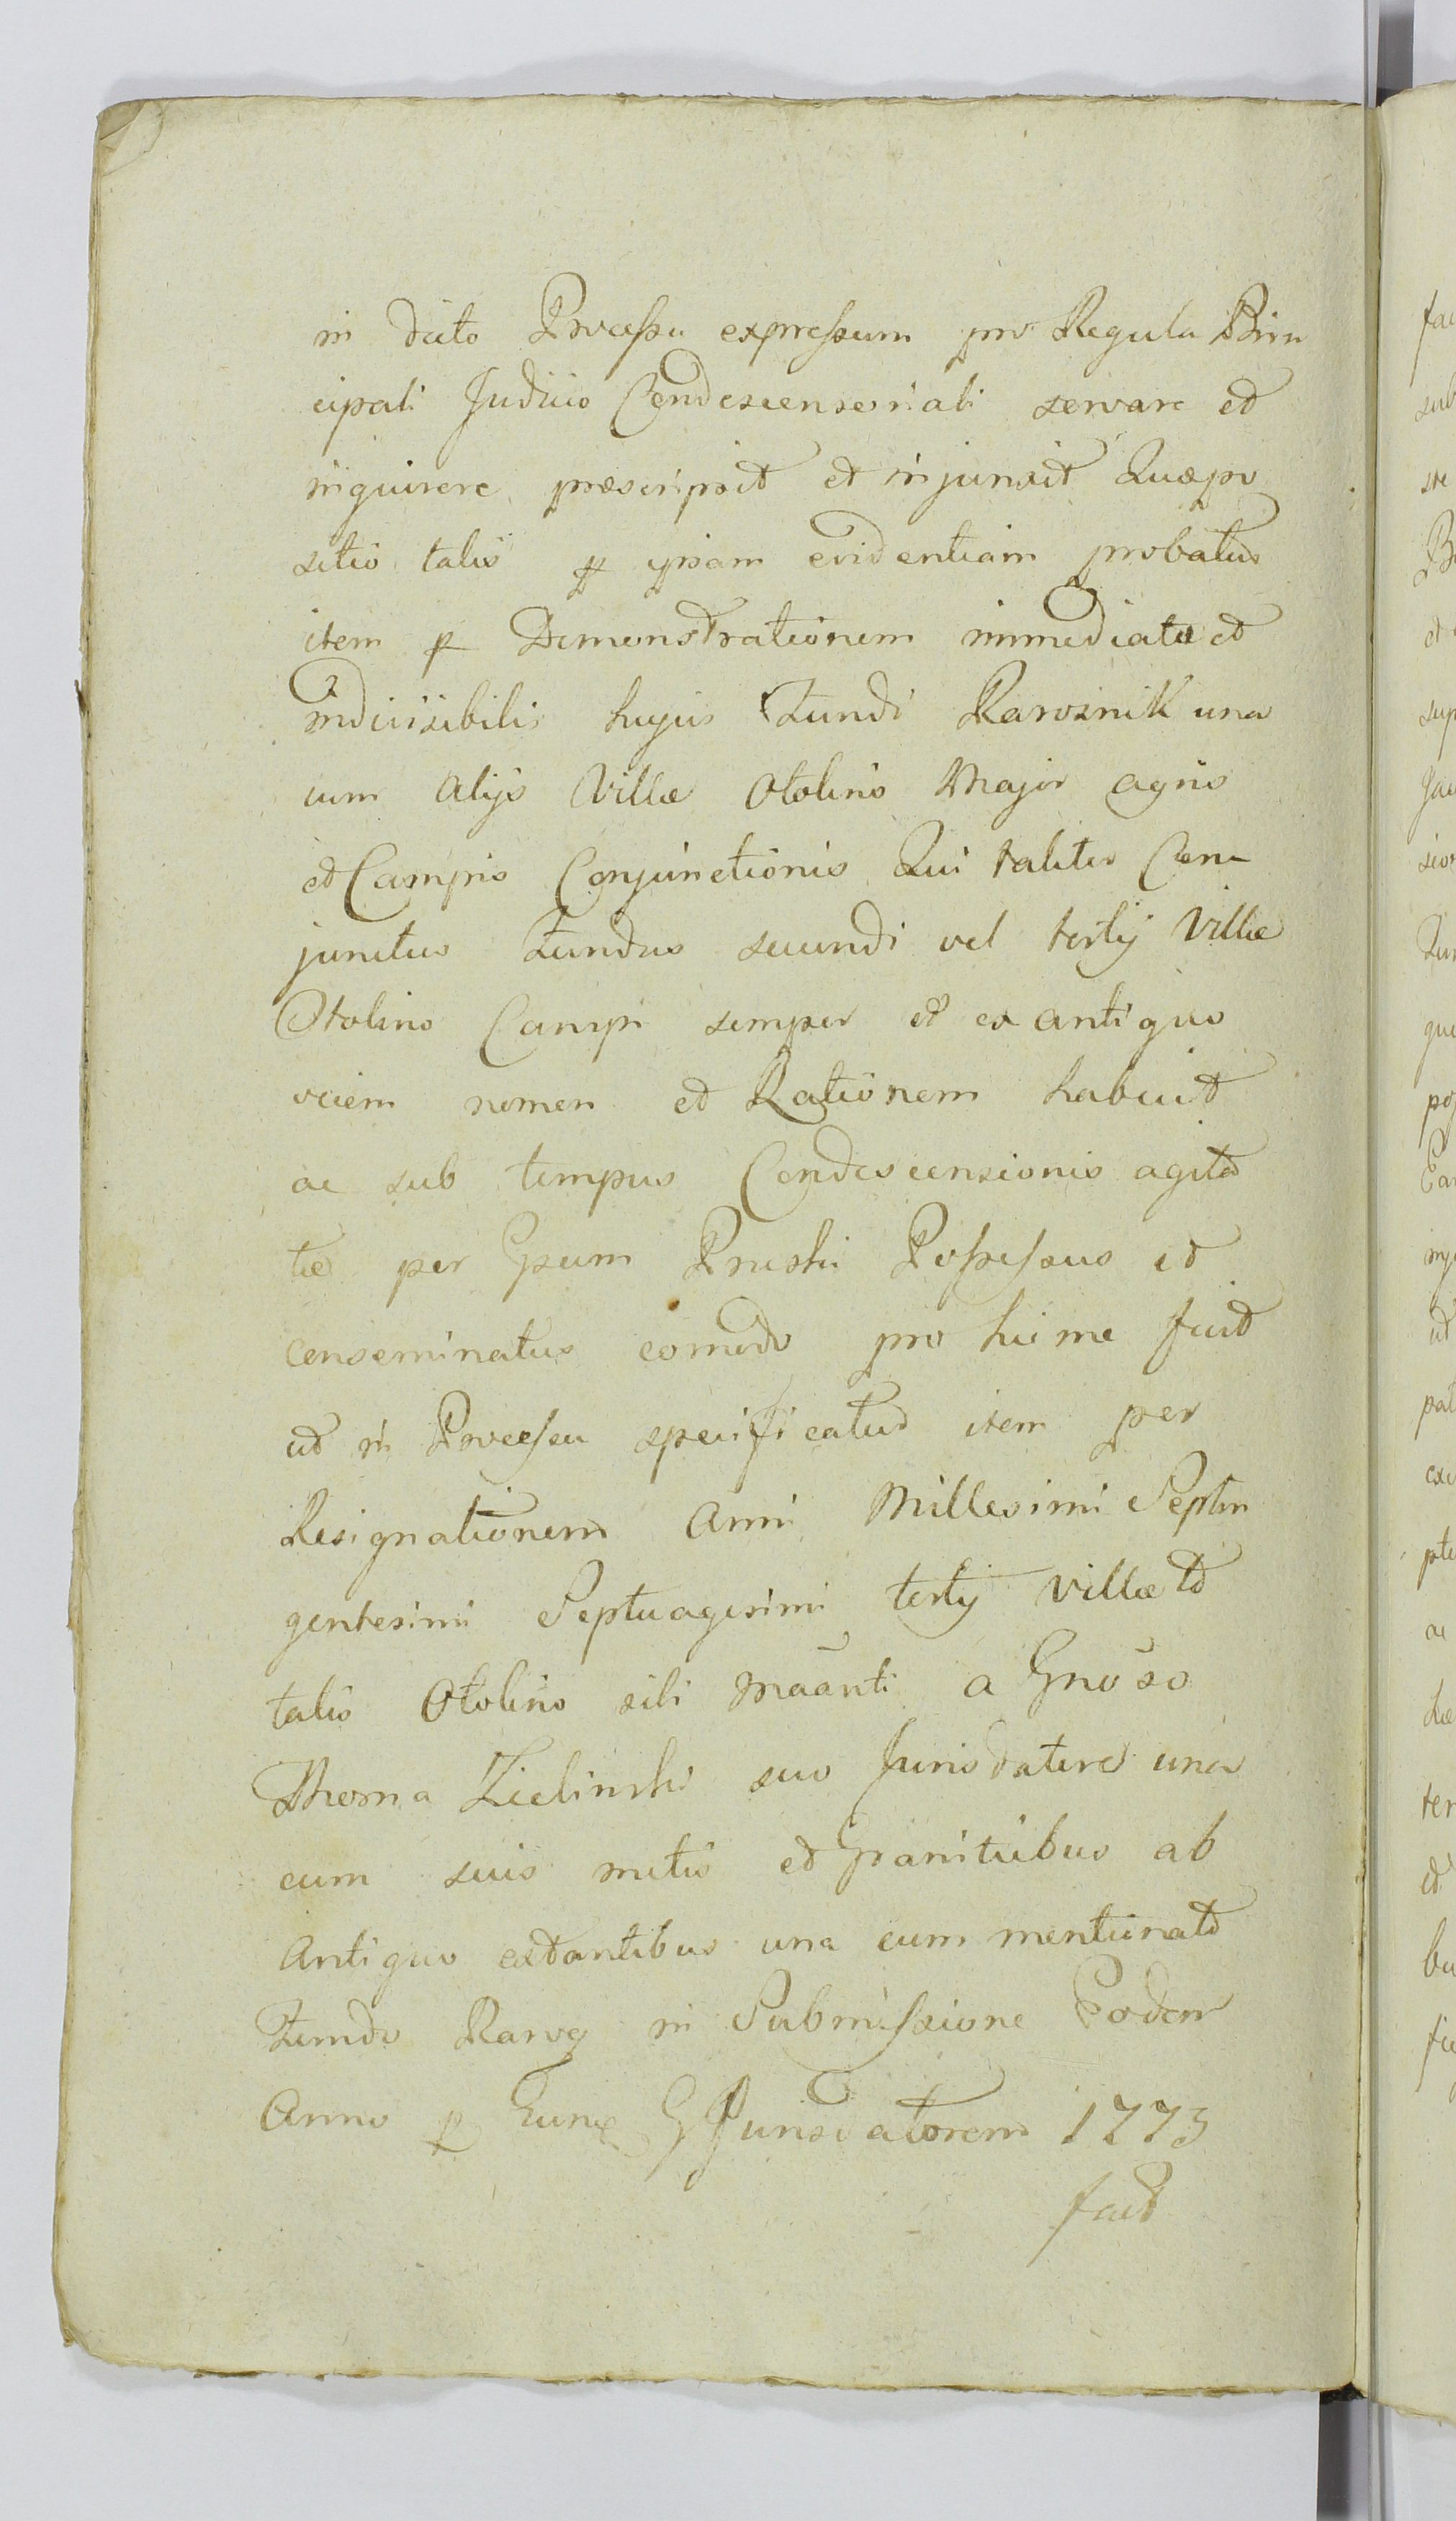 in dicto Processu expressum pro Regula Prin
cipali Judicio Condescensoriali servare et
inquirere præscripsit et injunxit Quæpo
sitio talis p ipsam evidentiam probatur
item p Demonstrationem immediatæ et
indivisibilis hujus Fundi Rawsnik una
cum Alijs Villæ Otolino Major agris
et Campis Conjunctionis Qui taliter Con
junctus Fundus secundi vel tertij Villæ
Otolino Campi semper et ex antiquo
vicem nomen et Rationem habuit
ac sub tempus Condescensionis agita
tæ per Gsum Pruski Possessus et
conseminatus eomodo pro hieme fuit
ut in Processu specificatur item per
Resignationem Anni Millesimi Septin
gentesimi Septuagesimi tertij Villæ to
talis Otolino sibi maanti a Gnoso
Thoma Zielinski suo Jurisdatore una
cum suis metis et Granitiebus ab
Antiquo extantibus una cum mentionato
Fundo in Submissione Eodem
Anno p Eunq G Jurisdatorem 1773
fact